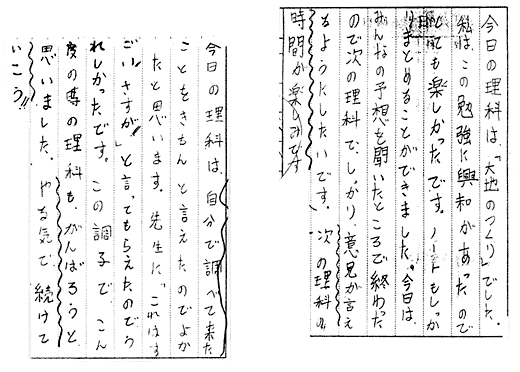 今日の理科は、「大地のつくり」でした。
私は、この勉強に興和があったので
とても楽しかったです。ノートもしっか
りまとめることができました。今日は、
みんなの予想を聞いたところで終わった
ので次の理科で、しっかり、意見が言え
るようにしたいです。次の理科の
時間が楽しみです
今日の理科は、自分で調べて来た
ことをきちんと言えたのでよか
たと思います。先生に、「これはす
ごい!さすが!」と言ってもらえたのでう
れしかったです。この調子で、こん
度の時の理科も、がんばろうと、
思いました。やる気で、続けて
いこう!!